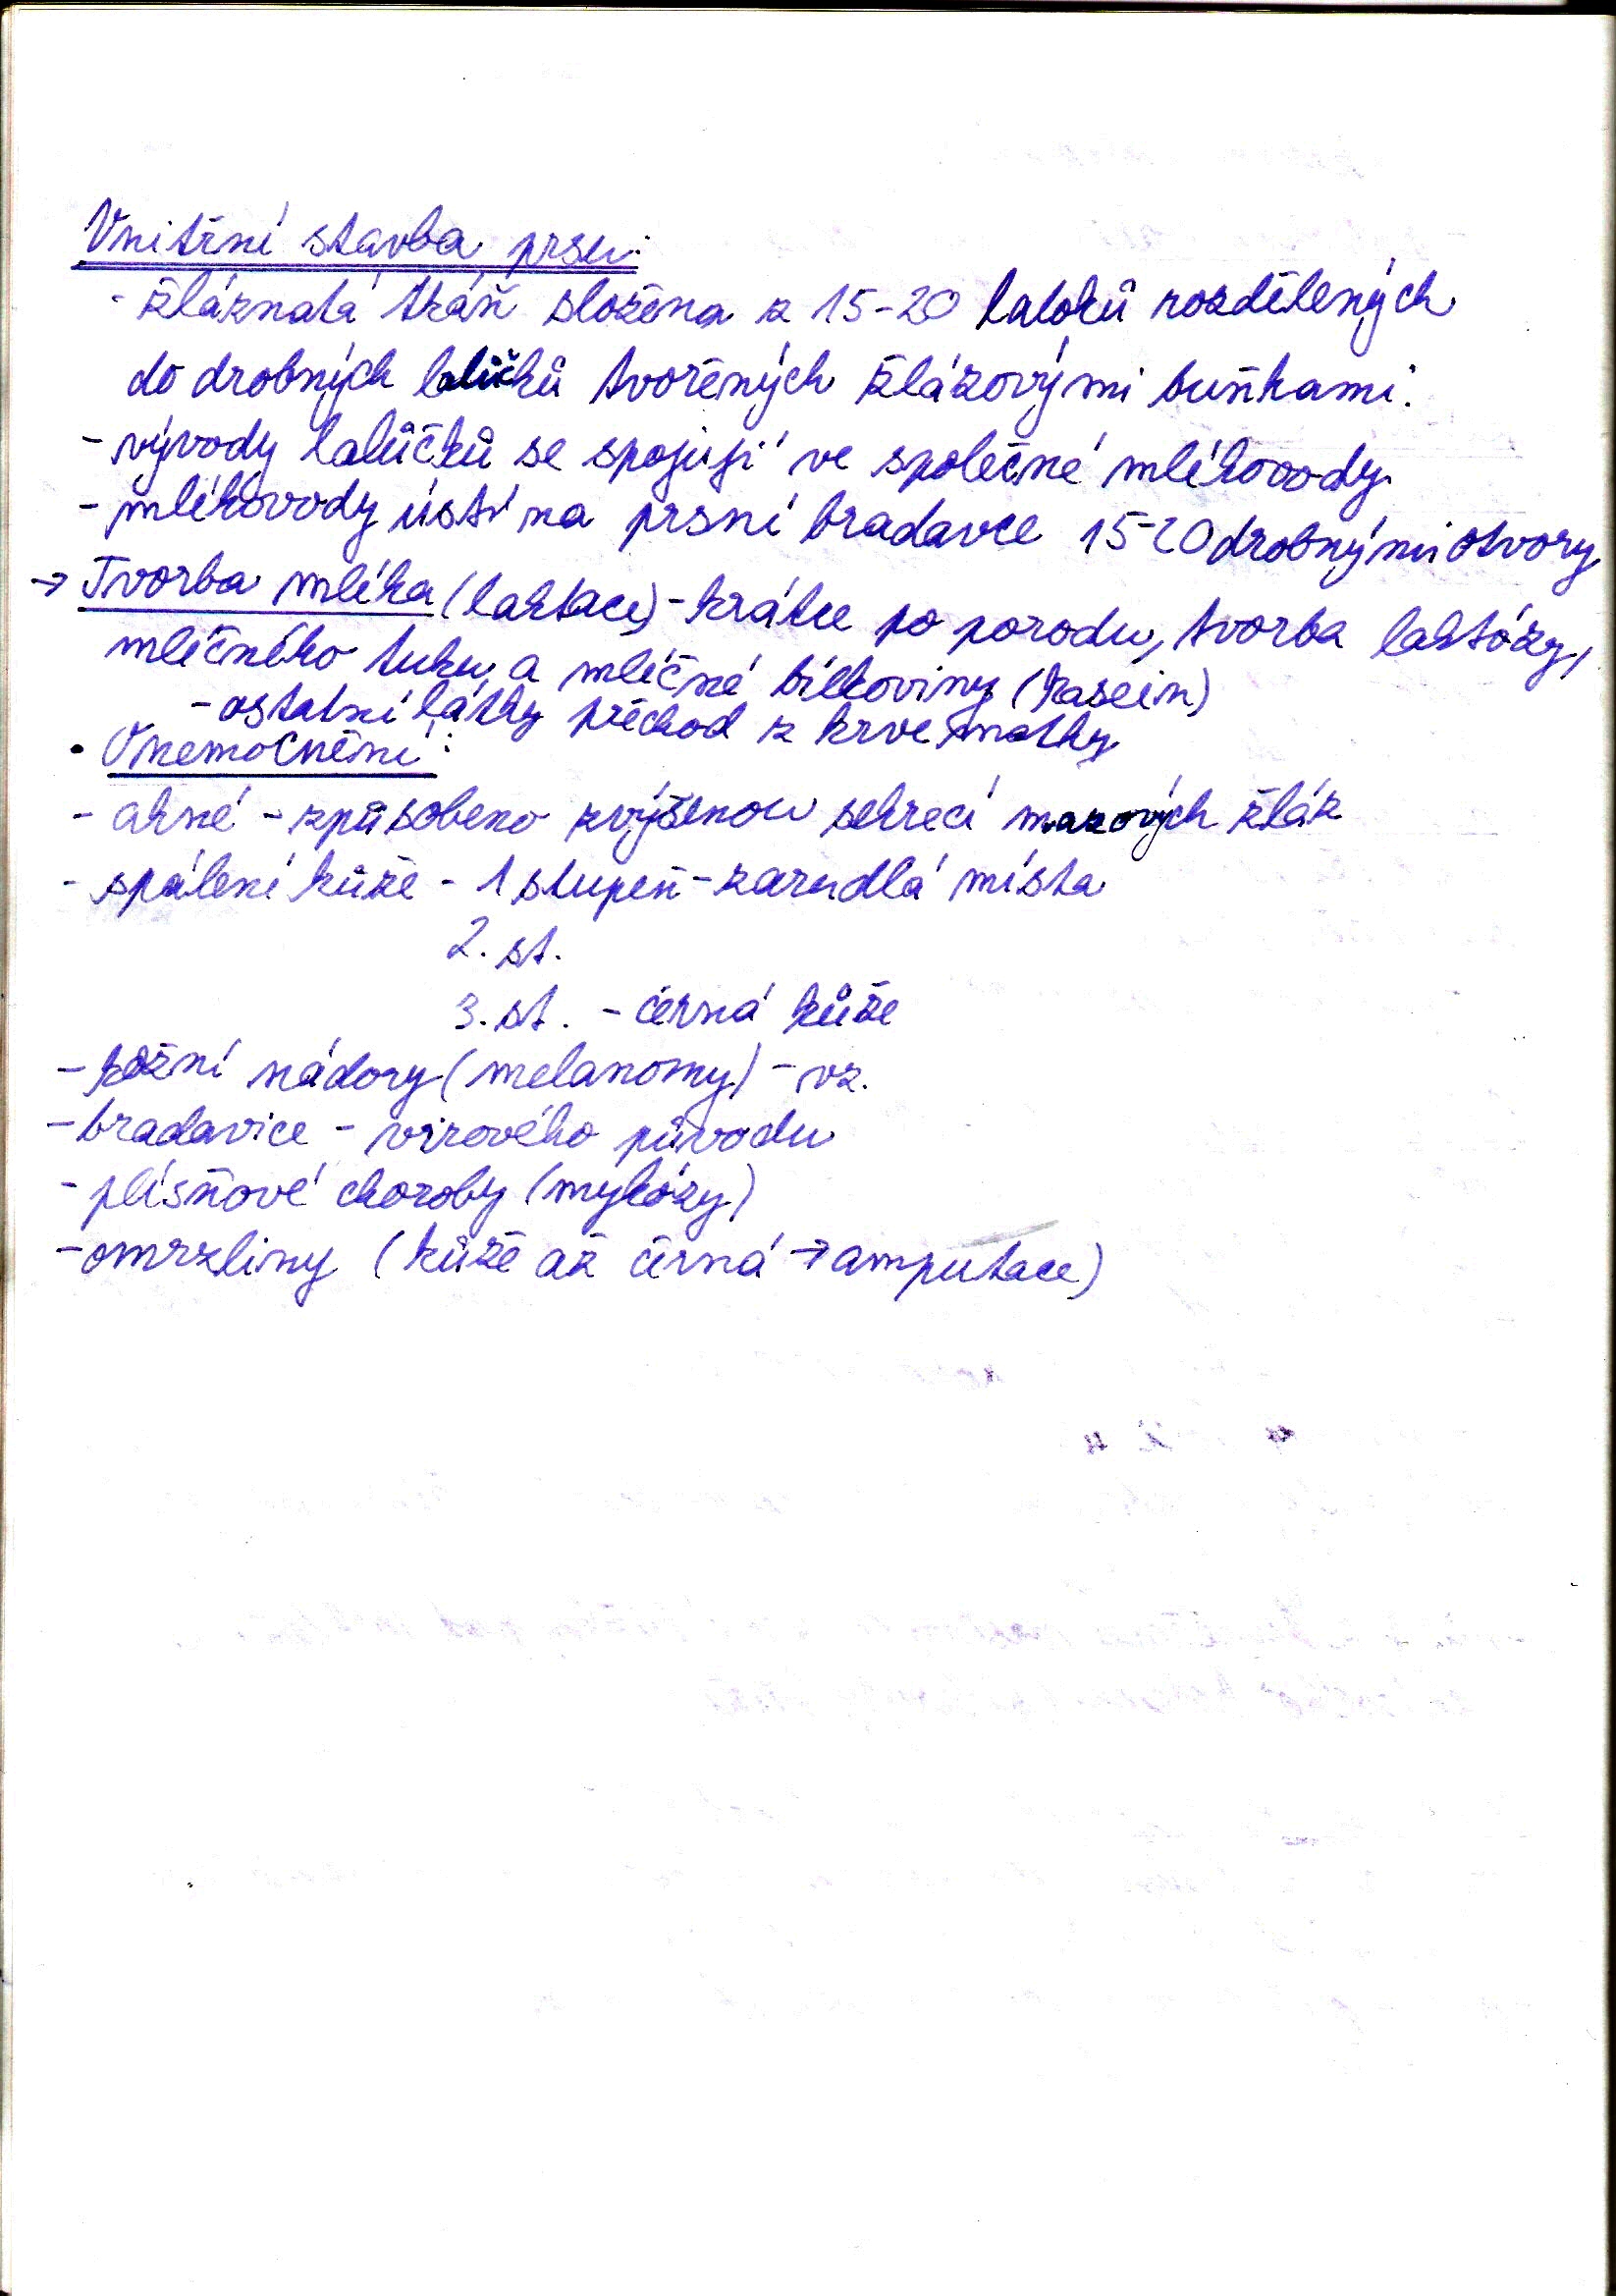 Vnitřní stavba prsu:
- žláznatá tkáň složena z 15-20 laloků rozdělených
do drobných lalůčků tvořených žlázovými buňkami.
- vývody lalůčků se spojují ve společné mlékovody.
- mlékovody ústí na prsní bradavce 15-20 drobnými otvory
→ Tvorba mléka (laktace) - krátce po porodu, tvorba laktózy,
mléčného tuku a mléčné bílkoviny (kasein)
- ostatní látky přechod z krve matky
• Onemocnění:
- akné - způsobeno zvýšenou sekrecí mazových žláz
- spálení kůže - 1 stupeň - zarudlá místa
2. st.
3. st. - černá kůže
- kožní nádory (melanomy) - vz.
- bradavice - virového původu
- plísňové choroby (mykózy)
- omrzliny (kůže až černá → amputace)